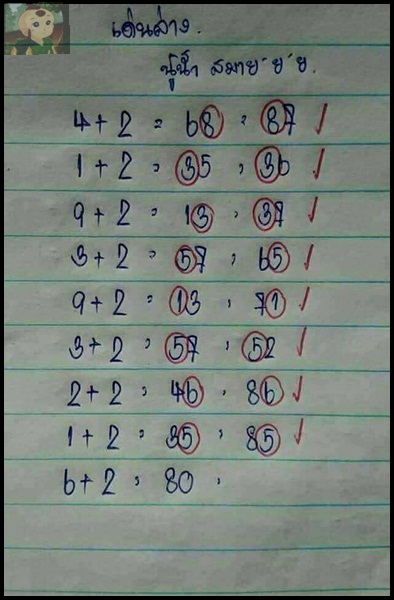 เด่นล่าง.
4 + 2 = 68 = 87 ✓
1 + 2 , 35 , 36 ✓
9 + 2 = 13 = 37 ✓
3 + 2 = 57 , 65 ✓
9 + 2 = 13 , 71 ✓
3 + 2 , 57 , 52 ✓
2 + 2 , 46 , 86 ✓
1 + 2 , 35 , 85 ✓
6 + 2 , 80 ,